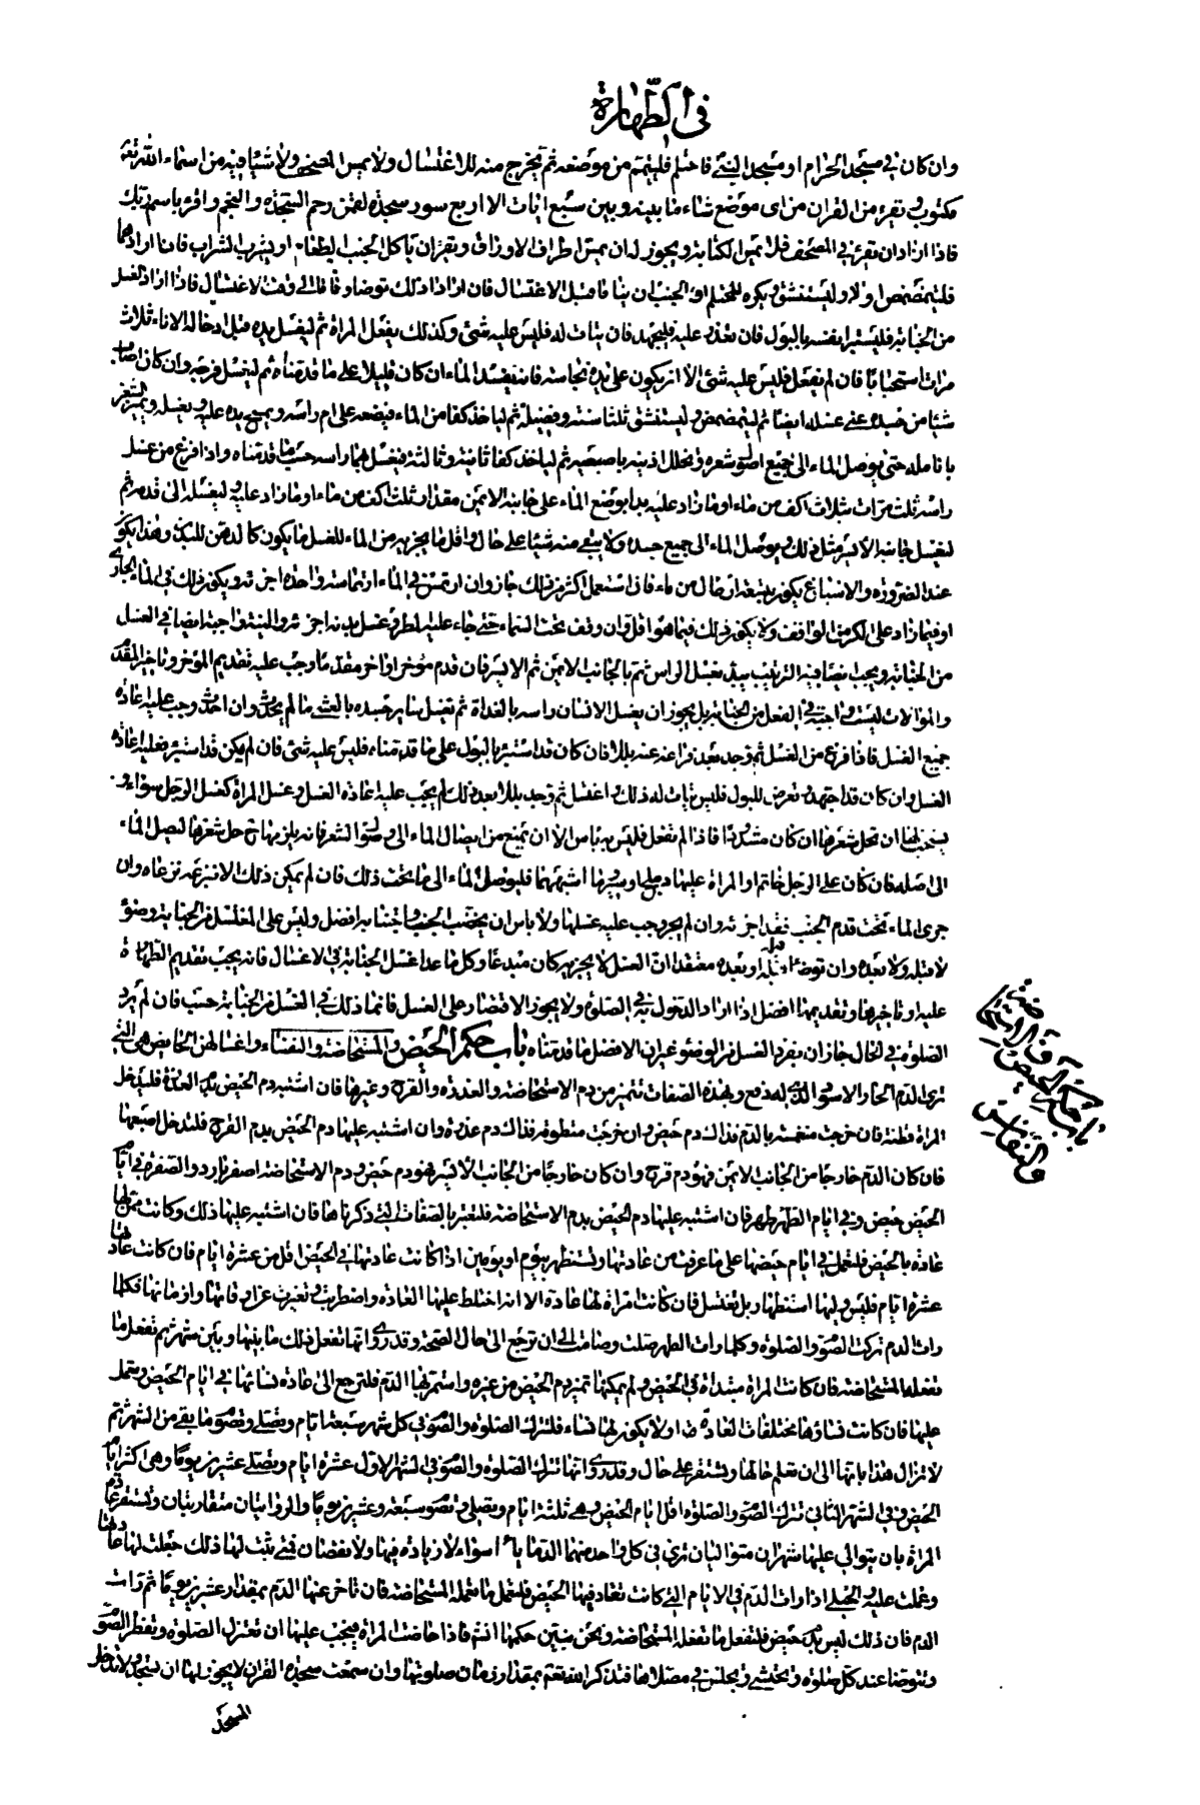 في الطهارة
وان كان في مسجد الحرام او مسجد النبي فاحتلم فليتيمم من موضعه ثم يخرج منه للاغتسال ولا يمس المصحف ولا شيئا فيه من اسماء الله تعالى
مكتوب ويقرء من القران من اى موضع شاء ما بينه وبين سبع ايات الا اربع سور سجدة لقمن وحم السجدة والنجم واقرء باسم ربك
فاذا اراد ان يقرء في المصحف فلا يمس الكتابة ويجوز له ان يمس اطراف الاوراق ويقرء ان ياكل الجنب الطعام او يشرب الشراب فان ارادهما
فليتمضمض اولا وليستنشق ويكره للمحتلم او الجنب ان ينام قبل الاغتسال فان اراد ذلك توضا ونام الى وقت الاغتسال فاذا اراد الغسل
من الجنابة فليستبرا نفسه بالبول فان تعذر عليه فليجهد فان لم يتات له فليس عليه شئ وكذلك يفعل المراة ثم ليغسل يده قبل ادخالها الاناء ثلاث
مرات استحبابا فان لم يفعل فليس عليه شئ الا ان يكون على يده نجاسة فانه يفسد الماء ان كان قليلا على ما قدمناه ثم ليغسل فرجه وان كان اصاب
شيئا من جسده مني غسله ايضا ثم ليتمضمض وليستنشق ثلثا سنة وفضيلة ثم لياخذ كفا من الماء فيضعه على ام راسه ويمسح يده عليه ويغسله ويميز الشعر
بانامله حتى يوصل الماء الى جميع اصول شعره ويخلل اذنيه باصبعيه ثم لياخذ كفا ثانية وثالثة فيغسل بهما راسه حسب ما قدمناه واذا فرغ من غسل
راسه ثلث مرات بثلاث اكف من ماء او ما زاد عليه بدا بوضع الماء على جانبه الايمن مقدار ثلث اكف من ماء او ما زاد عليه ليغسله الى قدمه ثم
ليغسل جانبه الايسر مثل ذلك ويوصل الماء الى جميع جسده ولا يبقي منه شيئا على حال واقل ما يجزيه من الماء للغسل ما يكون كالدهن للبدن وهذا يكون
عند الضرورة والاسباغ يكون بتسعة ارطال من ماء فان استعمل اكثر من ذلك جاز وان ارتمس في الماء ارتماسة واحدة اجزئه ويكون ذلك في الماء الجارى
او فيما زاد على الكر من الواقف ولا يكون ذلك فيما هو اقل وان وقف تحت السماء حتى جاء عليه المطر وغسل بدنه اجزئه والنية واجبة ايضا في الغسل
من الجنابة ويجب ايضا فيه الترتيب يبدء بغسل الراس ثم بالجانب الايمن ثم الايسر فان قدم مؤخرا واخر مقدما وجب عليه تقديم المؤخر وتاخير المقدم
والموالات ليست واجبة في الغسل من الجنابة بل يجوز ان يغسل الانسان راسه بالغداة ثم يغسل سائر جسده بالعشي ما لم يحدث وان احدث وجب عليه اعادة
جميع الغسل فاذا فرغ من الغسل ثم وجد بعد فراغه عنه بللا فان كان قد استبرا بالبول على ما قدمناه فليس عليه شئ فان لم يكن قد استبرء فعليه اعادة
الغسل وان كان قد اجتهد وتعرض للبول فليس يتات له ذلك واغتسل ثم وجد بللا بعد ذلك لم يجب عليه اعادة الغسل وغسل المراة كغسل الرجل سواء و
يستحب لها ان تحل شعرها ان كان مشدودا فاذا لم تفعل فليس به باس الا ان تمنع من ايصال الماء الى اصول الشعر فانه يلزمها حل شعرها ليصل الماء
الى اصله فان كان على الرجل خاتم او المراة عليها دملج او سيرها اشبههما فليوصل الماء الى ما تحت ذلك فان لم يمكن ذلك الا بنزعه نزعاه وان
جرى الماء تحت قدم الجنب فقد اجزئه وان لم يجر وجب عليه غسلها ولا باس ان يختضب الجنب واجتنابه افضل وليس على المغتسل من الجنابة وضوء
لا قبله ولا بعده وان توضاء قبله او بعده معتقدا ان الغسل لا يجزيه كان مبدعا وكل ما عدا غسل الجنابة في الاغتسال فانه يجب تقديم الطهارة
عليه او تاخيرها وتقديمها افضل اذا اراد الدخول به في الصلوة ولا يجوز الاقتصار على الغسل فانما ذلك في الغسل من الجنابة حسب فان لم يرد
الصلوة في الحال جاز ان يفرد الغسل من الوضوء غير ان الافضل ما قدمناه باب حكم الحيض والمستحاضة والنفساء واغسالهن الحائض هى التي
ترى الدم الحار الاسود الذى له دفع وبهذه الصفات تتميز من دم الاستحاضة والعذرة والقرح وغيرها فان اشتبه دم الحيض بدم العذرة فليدخل
المراة قطنة فان خرجت منغمسة بالدم فذاك دم حيض وان خرجت متطوقة فذاك دم عذرة وان اشتبه عليها دم الحيض بدم القرح فلتدخل اصبعها
فان كان الدم خارجا من الجانب الايمن فهو دم قرح وان كان خارجا من الجانب الايسر فهو دم حيض ودم الاستحاضة اصفر بارد والصفرة في ايام
الحيض حيض وفي ايام الطهر طهر فان اشتبه عليها دم الحيض بدم الاستحاضة فلتعتبر بالصفات التي ذكرناها فان اشتبه عليها ذلك وكانت ممن لها
عادة بالحيض فلتعمل في ايام حيضها على ما عرفت من عادتها وتستظهر بيوم او يومين اذا كانت عادتها في الحيض اقل من عشرة ايام فان كانت عادتها
عشرة ايام فليس عليها استظهار بل تغتسل فان كانت مراة لها عادة الا انه اختلط عليها العادة واضطربت وتغيرت عن اوقاتها وازمانها فكلما
رات الدم تركت الصوم والصلوة وكلما رات الطهر صلت وصامت الى ان ترجع الى حال الصحة وقد روى انها تفعل ذلك ما بينها وبين شهر ثم تفعل ما
تفعله المستحاضة فان كانت المراة مبتداة في الحيض ولم يمكنها تميز دم الحيض من غيره واستمر بها الدم فلترجع الى عادة نسائها في ايام الحيض وتعمل
عليها فان كانت نساؤها مختلفات العادة او لا يكون لها نساء فلتترك الصلوة والصوم في كل شهر سبعة ايام وتصلى وتصوم ما بقي من الشهر ثم
لا تزال هذا دابها الى ان تعلم حالها وتستقر على حال وقد روى انها تترك الصلوة والصوم في الشهر الاول عشرة ايام وتصلى عشرين يوما وهى اكثر ايام
الحيض وفي الشهر الثاني تترك الصوم والصلوة اقل ايام الحيض وهى ثلثة ايام وتصلى وتصوم سبعة وعشرين يوما والروايتان متقاربتان وتستقر عادة
المراة بان يتوالى عليها شهران متواليان ترى في كل واحد منهما الدم اياما سواء لا زيادة فيها ولا نقصان فمتى ثبت لها ذلك جعلت لها عادتها
وعملت عليه والحبلى اذا رات الدم في الايام التي كانت تعتاد فيها الحيض فلتعمل ما تعمله المستحاضة فان تاخر عنها الدم بمقدار عشرين يوما ثم رات
الدم فان ذلك ليس بدم حيض فلتفعل ما تفعله المستحاضة ونحن نبين حكمها انشاء الله فاذا حاضت المراة فيجب عليها ان تعتزل الصلوة وتفطر الصوم
وتتوضا عند كل صلوة وتحتشى وتجلس في مصلاها فتذكر الله تعالى بمقدار زمان صلوتها وان سمعت سجدة القران لا يجوز لها ان تسجد ولا تدخل
المسجد
باب حكم الحيض والاستحاضة
والنفاس